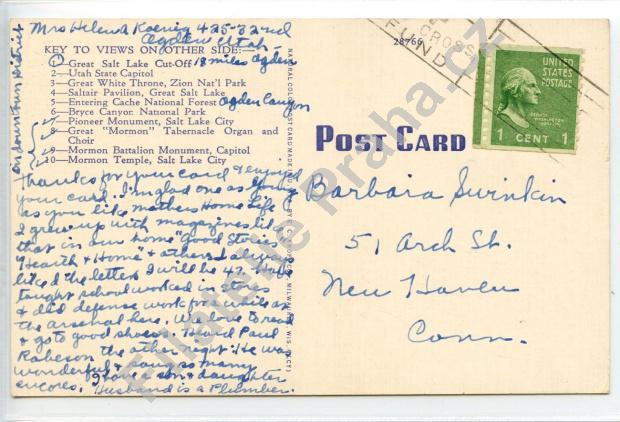 Mrs Helen A Koenig 435-32nd
Ogden Utah
KEY TO VIEWS ON OTHER SIDE:
1—Great Salt Lake Cut-Off 18 miles Ogden
2—Utah State Capitol
3—Great White Throne, Zion Nat'l Park
4—Saltair Pavilion, Great Salt Lake
5—Entering Cache National Forest Ogden Canyon
6—Bryce Canyon National Park
7—Pioneer Monument, Salt Lake City
8—Great "Mormon" Tabernacle Organ and
Choir
9—Mormon Battalion Monument, Capitol
10—Mormon Temple, Salt Lake City
in downtown district
Thanks for your card & enjoyed
your card. I'm glad one as young
as you like mothers Home Life
I grew up with magazines like
that in our home "Good Stories"
"Hearth & Home" & others I always
liked the letters I will be 47. Have
taught school worked in stores
& did defense work for awhile at
the arsenal here. We love to read
& go to good shows. Heard Paul
Robeson the other night. He was
wonderful & sang so many
encores. I have a son & daughter
Husband is a Plumber.
28766
CROSS
FUND
UNITED STATES
POSTAGE
1 CENT 1
POST CARD
Barbara Swinkin
51 Arch St.
New Haven
Conn.
Filatelie Praha.cz